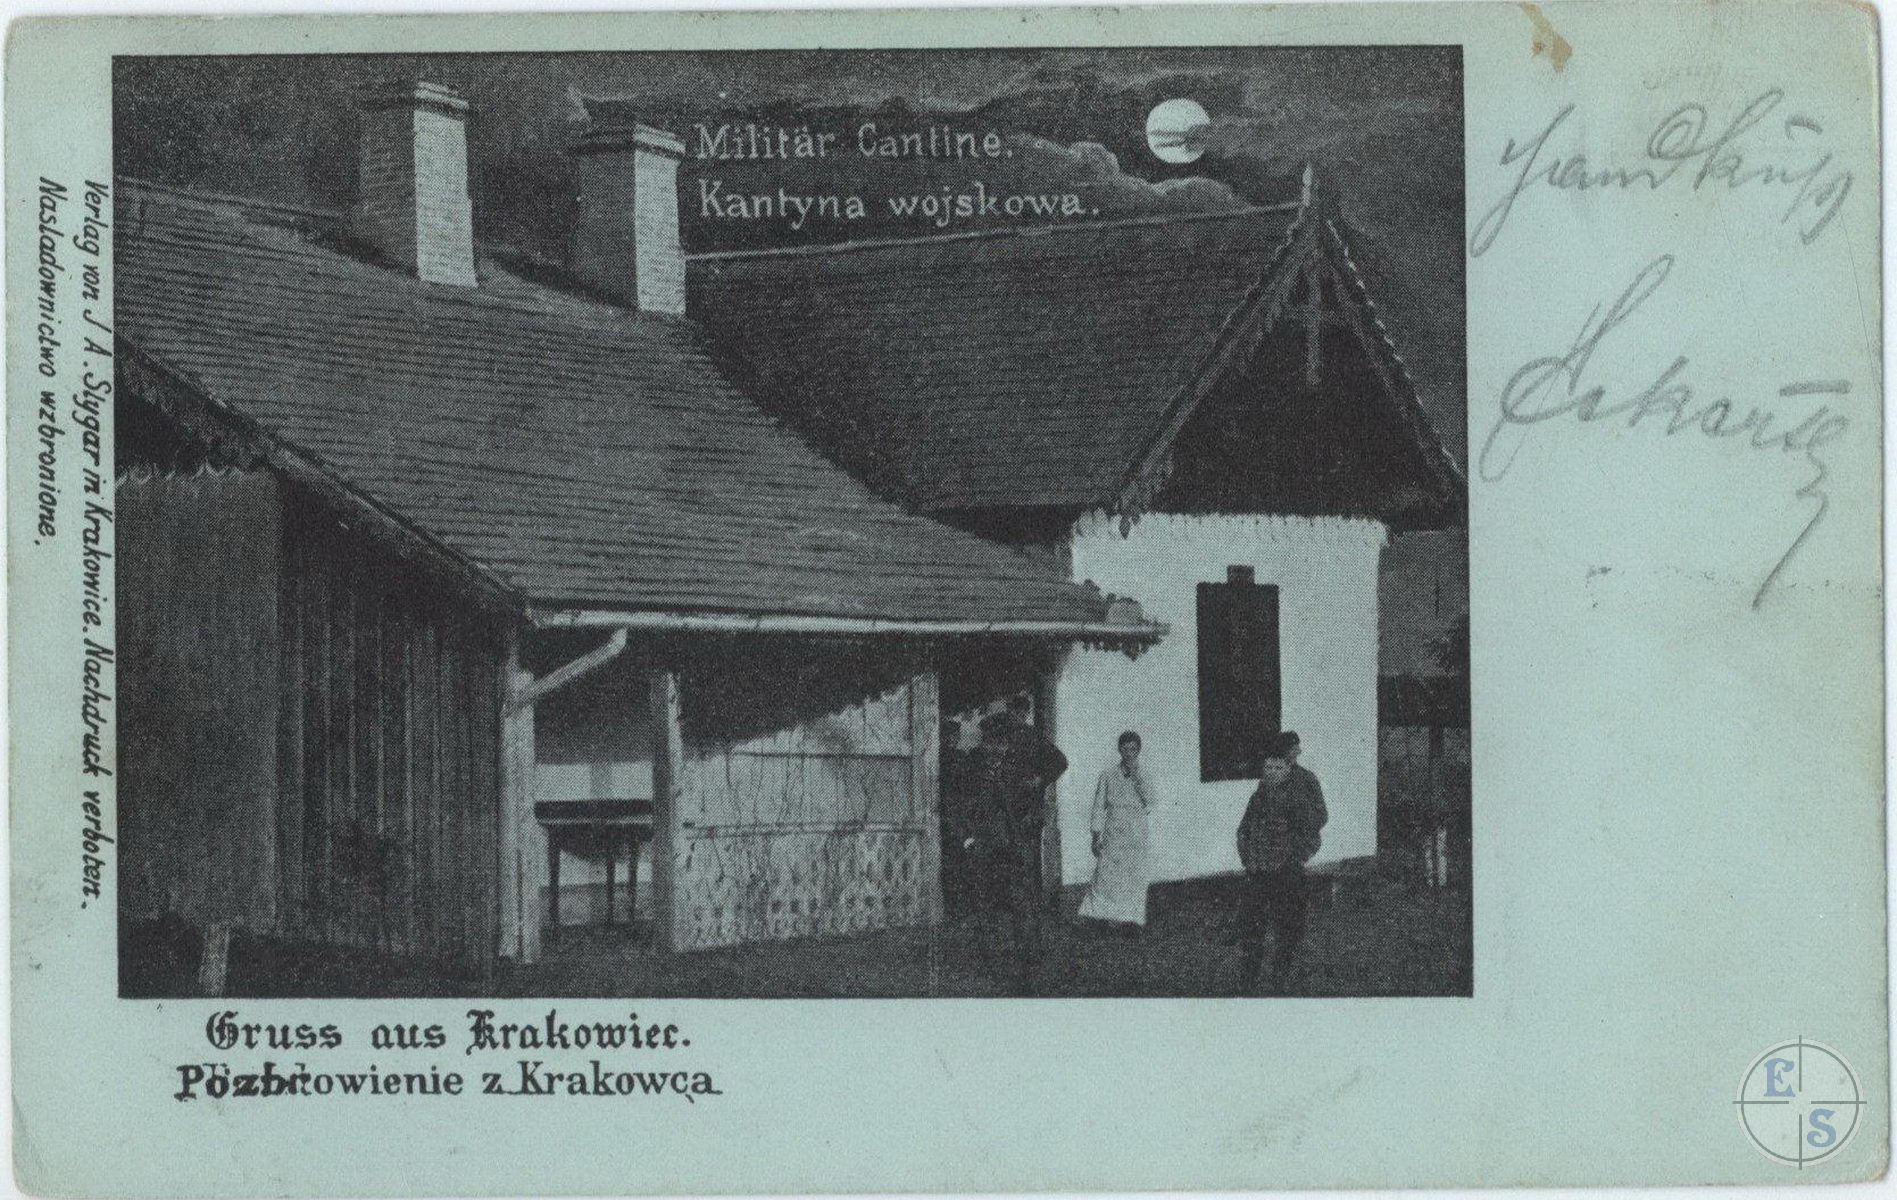 Militär Cantine.
Kantyna wojskowa.
Verlag von J A. Slygar in Krakowice. Nachdruck verboten.
Nasladownictwo wzbronione.
Handkuss
Gruss aus Krakowiec.
Pozdrowienie z Krakowca
E
S